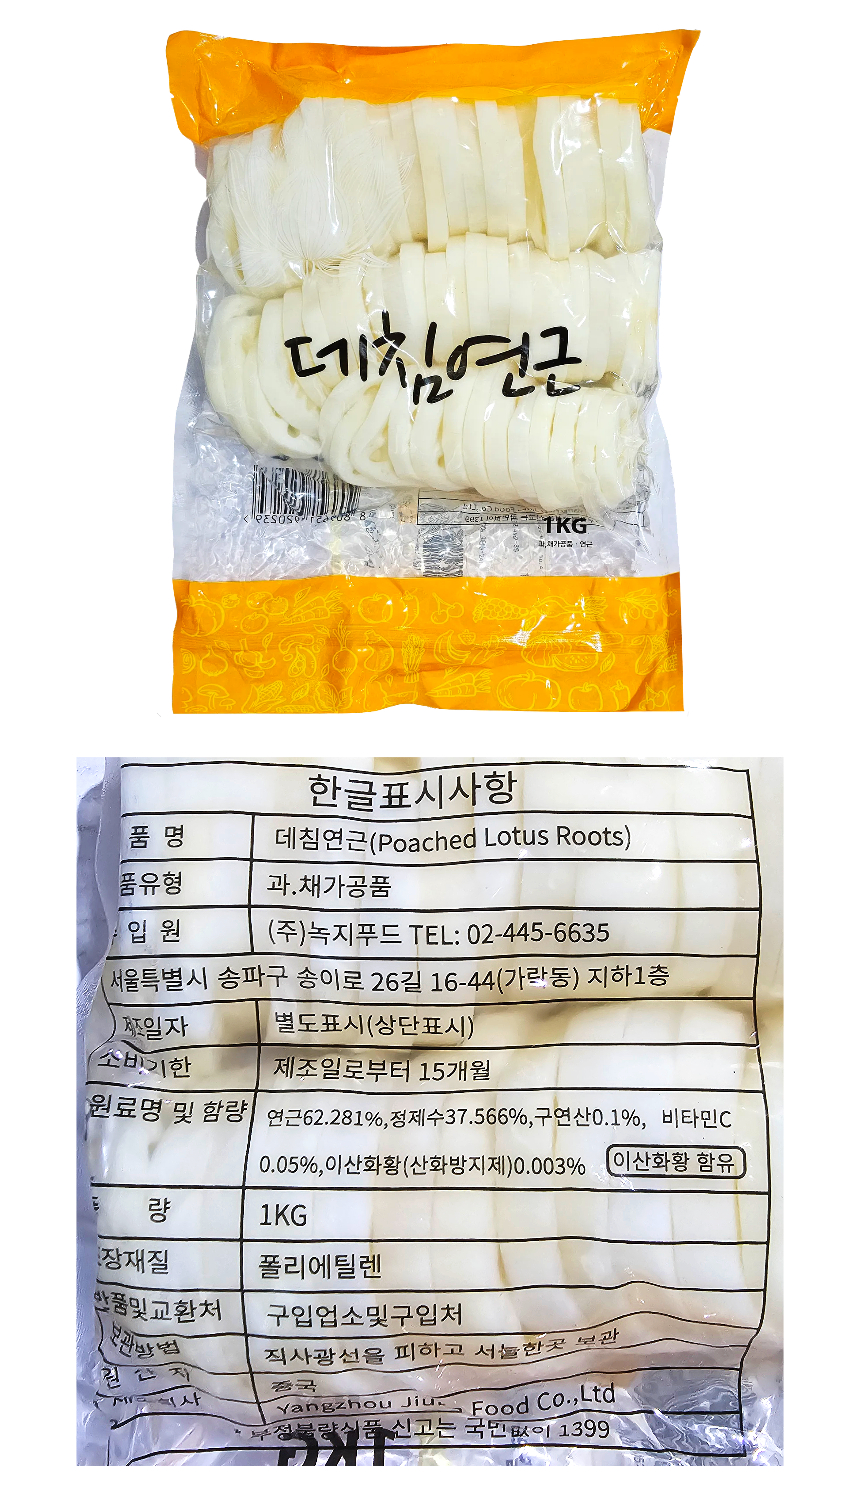 데침연근
1KG
과,채가공품 · 연근
한글표시사항
품 명 데침연근(Poached Lotus Roots)
품유형 과.채가공품
입 원 (주)녹지푸드 TEL: 02-445-6635
서울특별시 송파구 송이로 26길 16-44(가락동) 지하1층
제조일자 별도표시(상단표시)
소비기한 제조일로부터 15개월
원료명 및 함량 연근62.281%,정제수37.566%,구연산0.1%, 비타민C
0.05%,이산화황(산화방지제)0.003% 이산화황 함유
량 1KG
장재질 폴리에틸렌
반품및교환처 구입업소및구입처
보관방법 직사광선을 피하고 서늘한곳 보관
원 산 지 중국
Yangzhou Food Co.,Ltd
* 부정불량식품 신고는 국번없이 1399
1KG